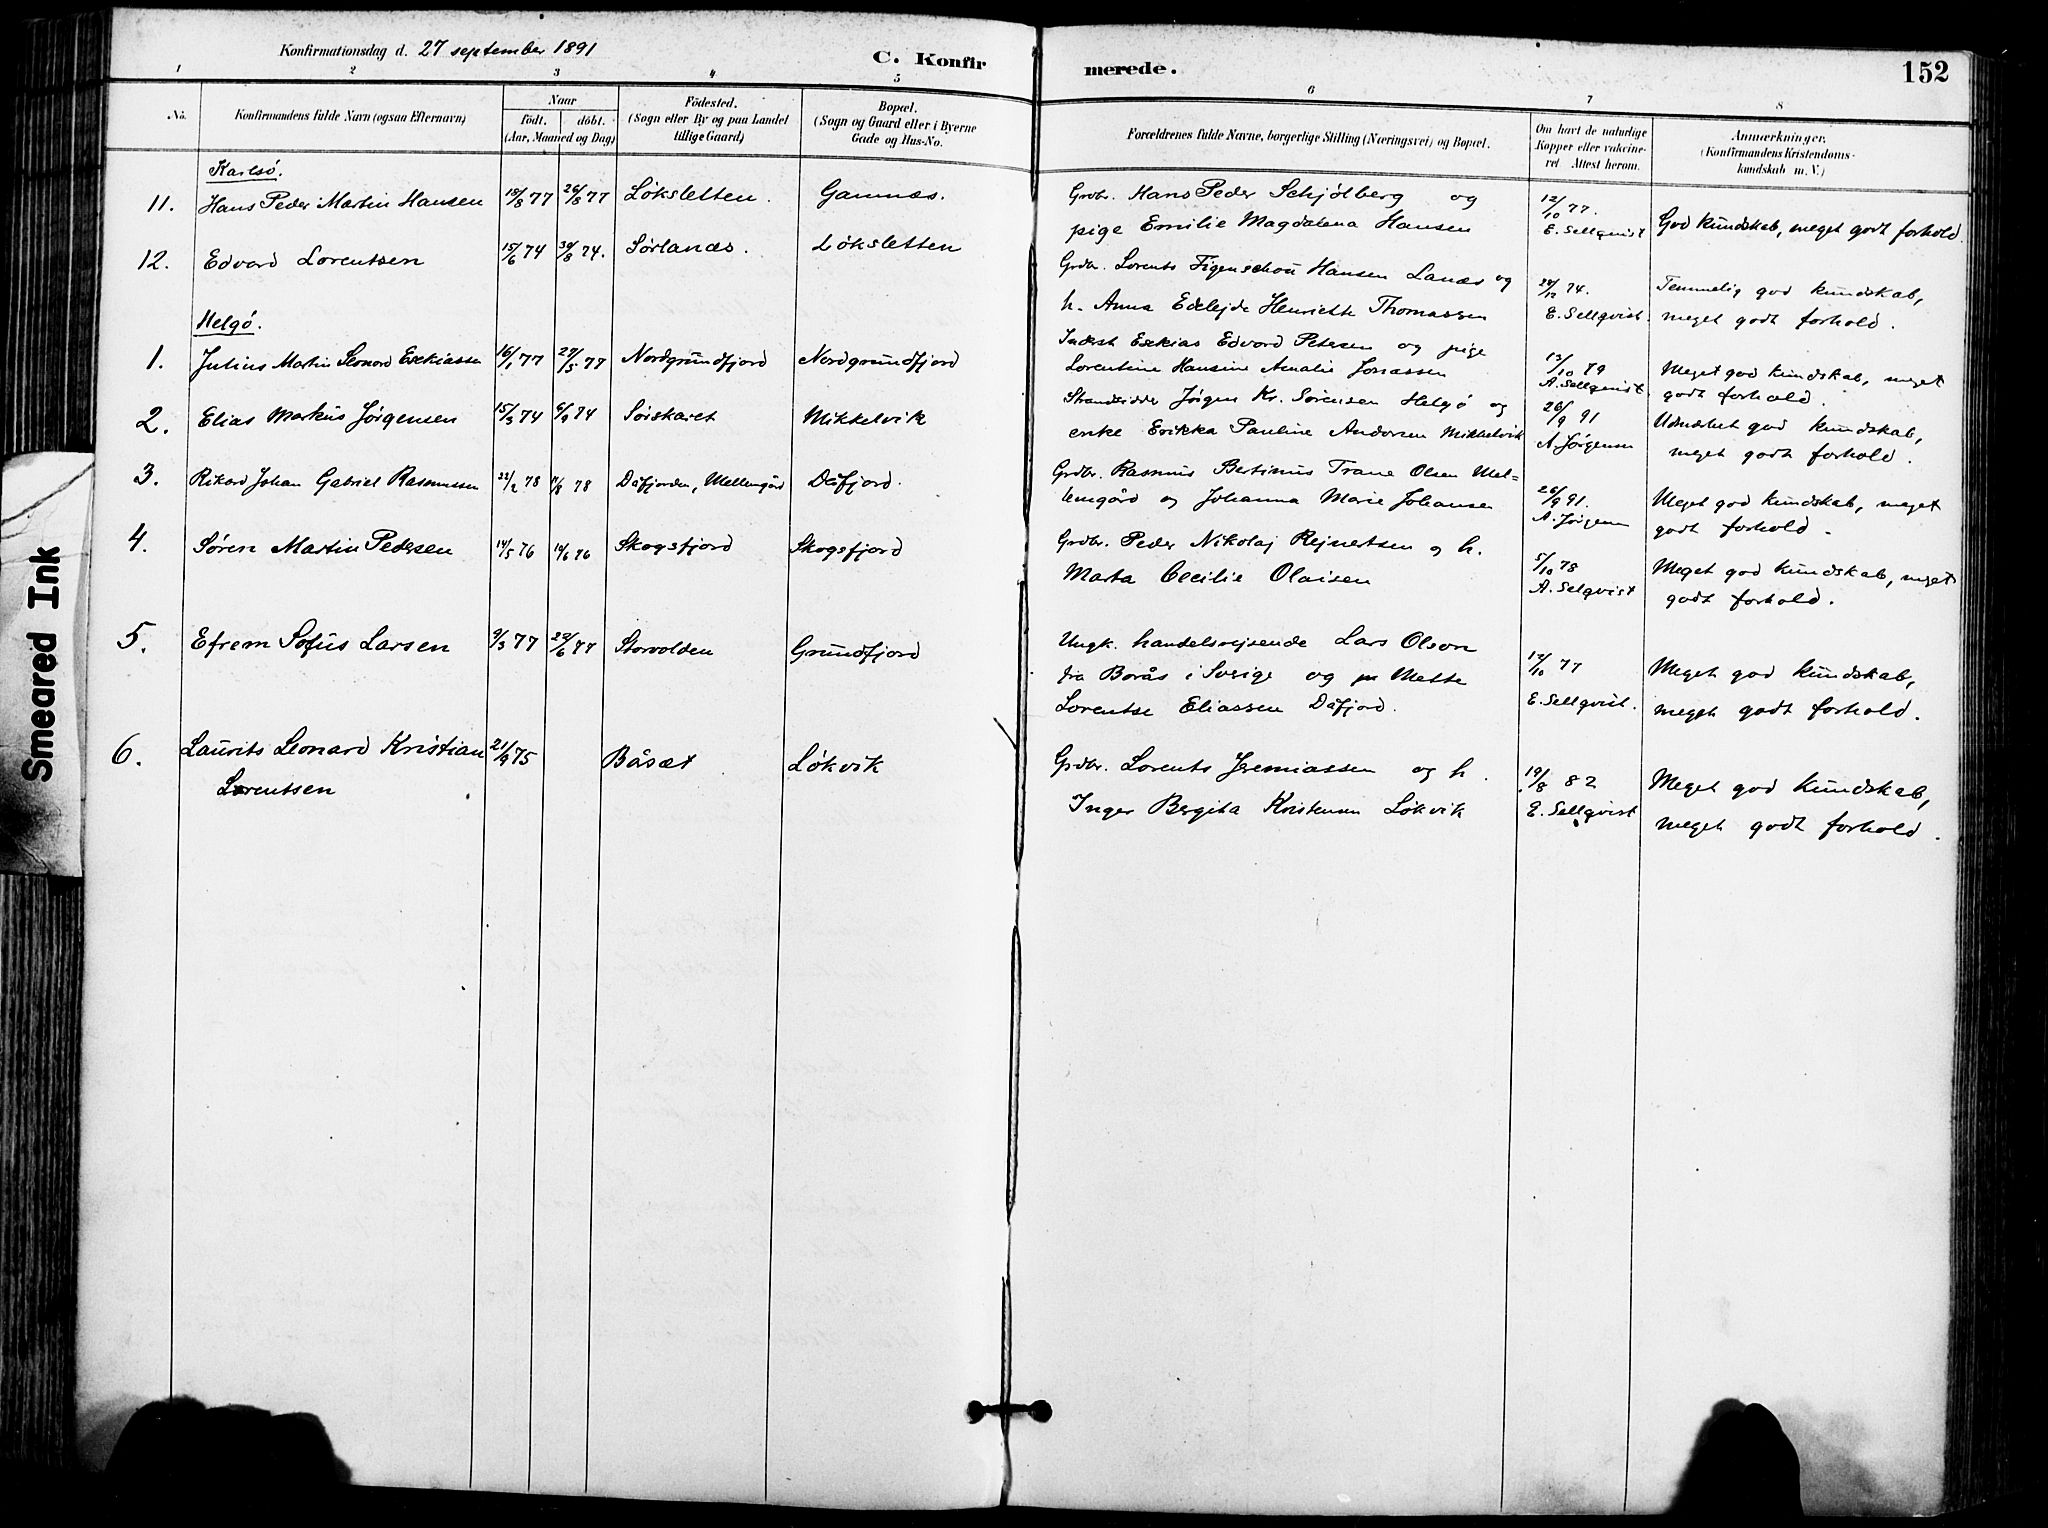 Konfirmationsdag d. 27 september 1891
C. Konfirmerede.
152
1 2 3 4 5 6 7 8
No.
Konfirmandens fulde Navn (ogsaa Efternavn)
Naar
födt. döbt.
(Aar, Maaned og Dag)
Födested.
(Sogn eller By og paa Landet
tillige Gaard)
Bopæl.
(Sogn og Gaard eller i Byerne
Gade og Hus-No.
Forældrenes fulde Navne, borgerlige Stilling (Næringsvei) og Bopæl.
Om havt de naturlige
Kopper eller vakcine-
ret. Attest herom.
Anmærkninger.
(Konfirmandens Kristendoms-
kundskab m. V.)
Karlsø.
11. Hans Peder Martin Hansen 18/8 77 26/8 77 Løksletten. Gamnæs.
Grdbr. Hans Peder Schjølberg og
pige Emilie Magdalena Hansen
12/10 77.
E. Sellqvist
God kundskab, meget godt forhold.
12. Edvard Lorentsen 15/6 74 30/8 74. Sørlanæs. Løksletten
Grdbr. Lorents Figenschou Hansen Lanæs og
h. Anna Edelejde Henriette Thomassen
/12 74.
E. Sellqvist.
Temmelig god kundskab,
meget godt forhold.
Helgø.
1. Julius Martin Leonard Esekiassen 16/1 77 27/5 77 Nordgrundfjord Nordgrundfjord
Inderst Esekias Edvard Petersen og pige
Lorentine Hansine Amalie Jonassen
13/10 79
A. Sellqvist
Meget god kundskab, meget
godt forhold.
2. Elias Markus Jørgensen 15/3 74 6/9 74 Sørskaret Mikkelvik
Strandsidder Jørgen Kr. Sørensen Helgø og
enke Erikka Pauline Andersen Mikkelvik
26/9 91
A. Jørgensen
Udmærket god kundskab,
meget godt forhold.
3. Rikard Johan Gabriel Rasmussen 22/2 78 /8 78 Dåfjorden, Mellemgård Dåfjord.
Grdbr. Rasmus Bertinius Trane Olsen Mel=
lemgård og Johanna Marie Johansen
26/9 91.
A. Jørgensen
Meget god kundskab, meget
godt forhold.
4. Søren Martin Pedersen 14/5 76 /6 76 Skogsfjord Skogsfjord
Grdbr. Peder Nikolaj Rejnertsen og h.
Marta Cecilie Olaisen
5/10 78
A. Selqvist
Meget god kundskab, meget
godt forhold.
5. Efrem Sofus Larsen 9/3 77 /6 77 Storvolden Grundfjord
Ungk. handelsrejsende Lars Olson
fra Borås i Sverige og Mette
Lorentse Eliassen Dåfjord.
12/10 77
E. Sellqvist.
Meget god kundskab,
meget godt forhold.
6. Laurits Leonard Kristian 21/9 75 Båsæt Løkvik
Lorentsen
Grdbr. Lorents Jeremiassen og h.
Inger Bergita Kristensen Løkvik
19/8 82
E. Sellqvist
Meget god kundskab,
meget godt forhold.
Smeared Ink